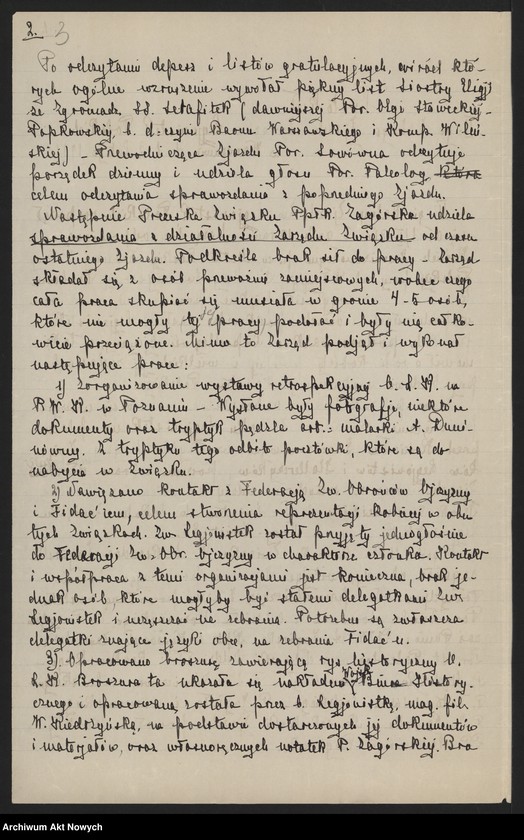 2. 3
Po odczytaniu depesz i listów gratulacyjnych, wśród któ-
rych ogólne wzruszenie wywołał piękny list siostry Eligji
ze Zgromadz. SS. Serafitek (dawniejszej Por. Olgi Staweckiej-
Popkowskiej, b. d-czyni Baonu Warszawskiego i Komp. Wileń-
skiej) - Przewodnicząca Zjazdu Por. odczytuje
porządek dzienny i udziela głosu Por. Paleolog która
celem odczytania sprawozdania z poprzedniego Zjazdu.
Następnie Prezeska Związku Ppłk. Zagórska udziela
sprawozdania z działalności Zarządu Związku od czasu
ostatniego Zjazdu. Podkreśla brak sił do pracy - Zarząd
składał się z osób przeważnie zamiejscowych, wobec czego
cała praca skupiać się musiała w gronie 4-5 osób,
które nie mogły tej pracy podołać i były nią całko-
wicie przeciążone. Mimo to Zarząd podjął i wykonał
następujące prace:
1) Zorganizowanie wystawy retrospekcyjnej O. L. K. na
P. W. K. w Poznaniu - Wysłane były fotografje, niektóre
dokumenty oraz tryptyk pędzla art.: malarki A. Duni-
nówny. Z tryptyku tego odbito pocztówki, które są do
nabycia w Związku.
2) Nawiązano kontakt z Federacją Zw. Obrońców Ojczyzny
i Fidac'iem, celem stworzenia reprezentacji kobiecej w obu
tych Związkach. Zw. Legjonistek został przyjęty jednogłośnie
do Federacji Zw. Obr. Ojczyzny w charakterze członka. Kontakt
i współpraca z temi organizacjami jest konieczna, brak je-
dnak osób, które mogłyby być stałemi delegatkami Zw.
Legjonistek i uczęszczać na zebrania. Potrzebne są zwłaszcza
delegatki znające języki obce, na zebrania Fidac'u.
3). Opracowano broszurę zawierającą rys historyczny O.
L. K. Broszura ta ukazała się nakładem Wojsk. Biura History-
cznego i opracowaną została przez b. Legjonistkę, mag. fil.
W. Kiedrzyńską, na podstawie dostarczonych jej dokumentów
i materjałów, oraz własnoręcznych notatek P. Zagórskiej. Bra
Archiwum Akt Nowych